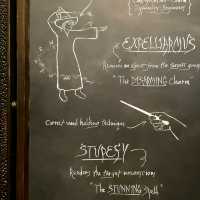 EXPELLIARMUS
Removes an object from the target's grasp
"The DISARMING Charm"
Correct wand holding technique
STUPEFY
Renders the target unconscious
"The STUNNING Spell"